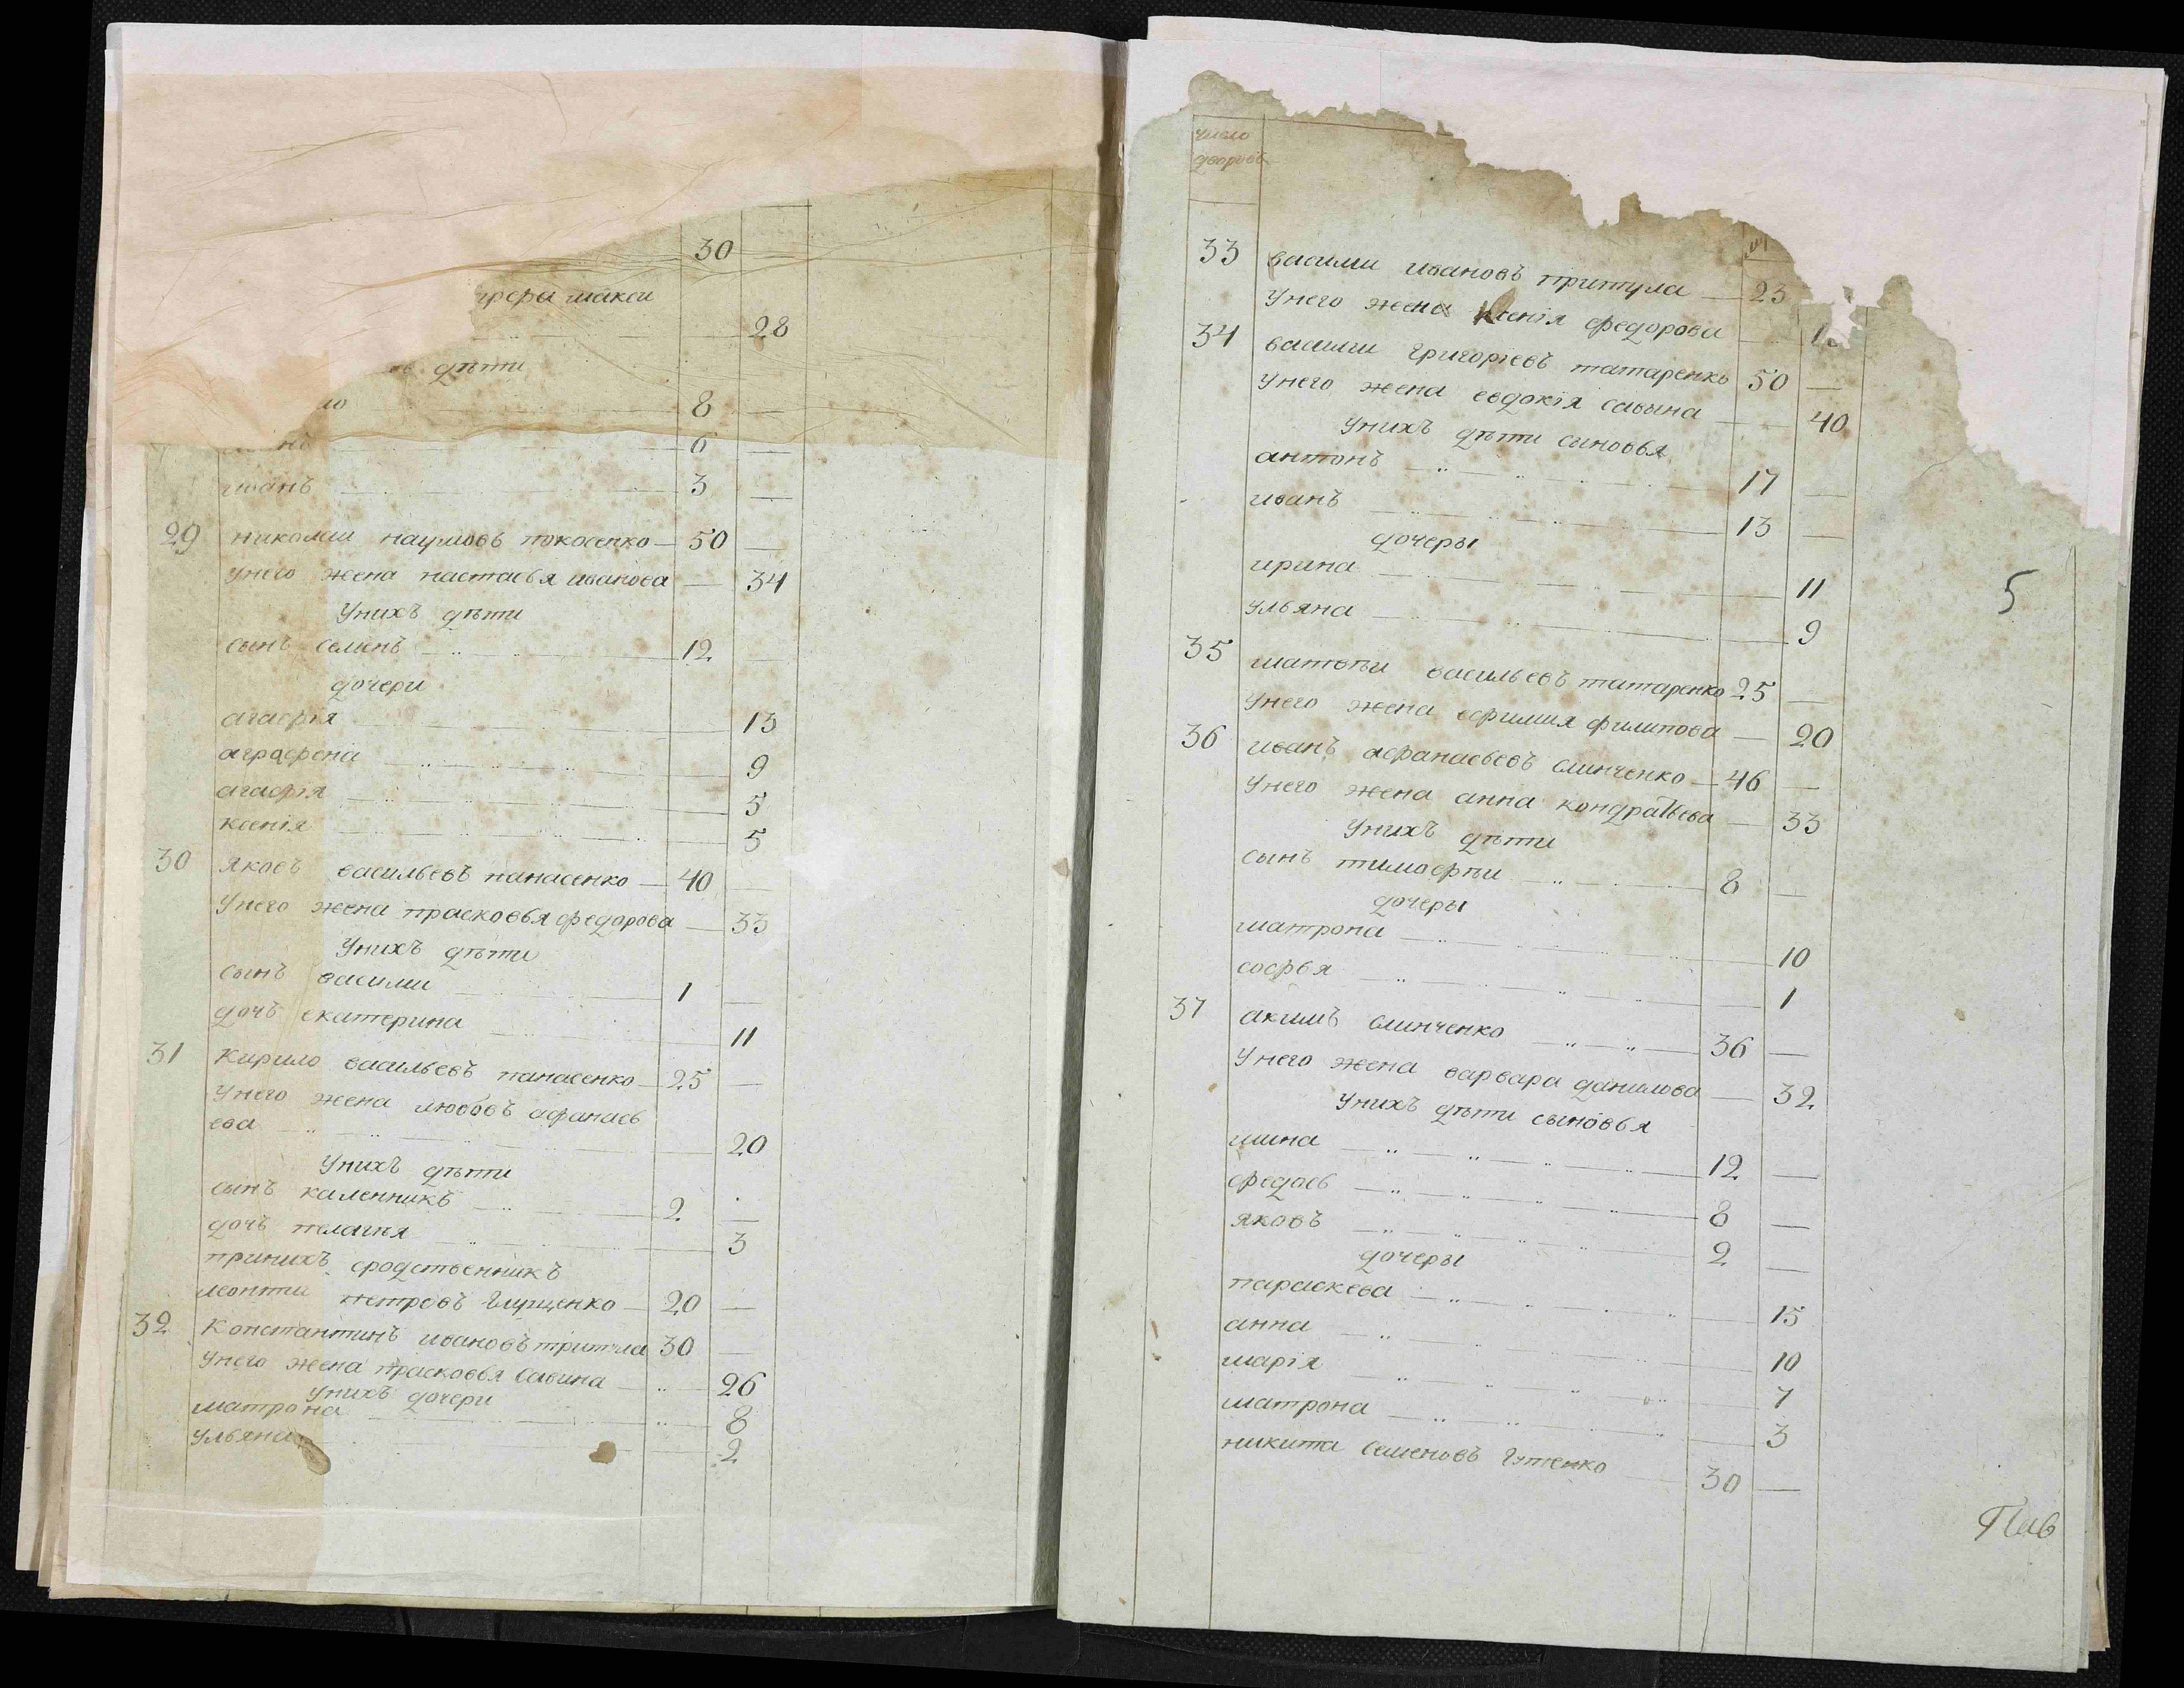 30
28
дѣти
8 —
6 —
иванъ 3 —
29 николаи наумовъ покосенко — 50 —
унего жена настасья иванова — 34
Унихъ дѣти
сынъ семенъ 12 —
дочери
агафія 13
аграфена 9
агафія 5
ксенія 5
30 Яковъ васильевъ панасенко — 40 —
Унего жена прасковья федорова — 33
Унихъ дѣти
сынъ василии 1 —
дочъ екатерина 11
31 Кирило васильевъ панасенко — 25 —
Унего жена любовъ афанась
ева 20
Унихъ дѣти
сынъ каленникъ 2 —
дочъ пелагѣя 3
принихъ сродственникъ
леонтии петровъ — 20 —
32 Константинъ ивановъ притула 30 —
Унего жена прасковья савина — 26
Унихъ дочери
матрона 8
Ульяна 2
число
дворовъ
33 василии ивановъ притула — 23
Унего жена Ксенія федорова
34 василии григорьевъ татаренко 50 —
Унего жена евдокія савына — 40
Унихъ дѣти сыновья
антонъ 17 —
иванъ 13 —
дочеры
ирина 11
Ульяна 9
5
35 матвѣи васильевъ татаренко 25 —
Унего жена ефимия филипова — 20
36 иванъ афанасьевъ слинченко — 46 —
Унего жена анна кондратьева — 33
Унихъ дѣти
сынъ тимофѣи 8 —
дочеры
матрона 10
софья 1
37 акимъ слинченко 36 —
Унего жена варвара данилова — 32
Унихъ дѣти сыновья
мина 12 —
федосъ 8 —
яковъ 2 —
дочеры
параскева 15
анна 10
марія 7
матрона 3
никита семеновъ гутенко 30 —